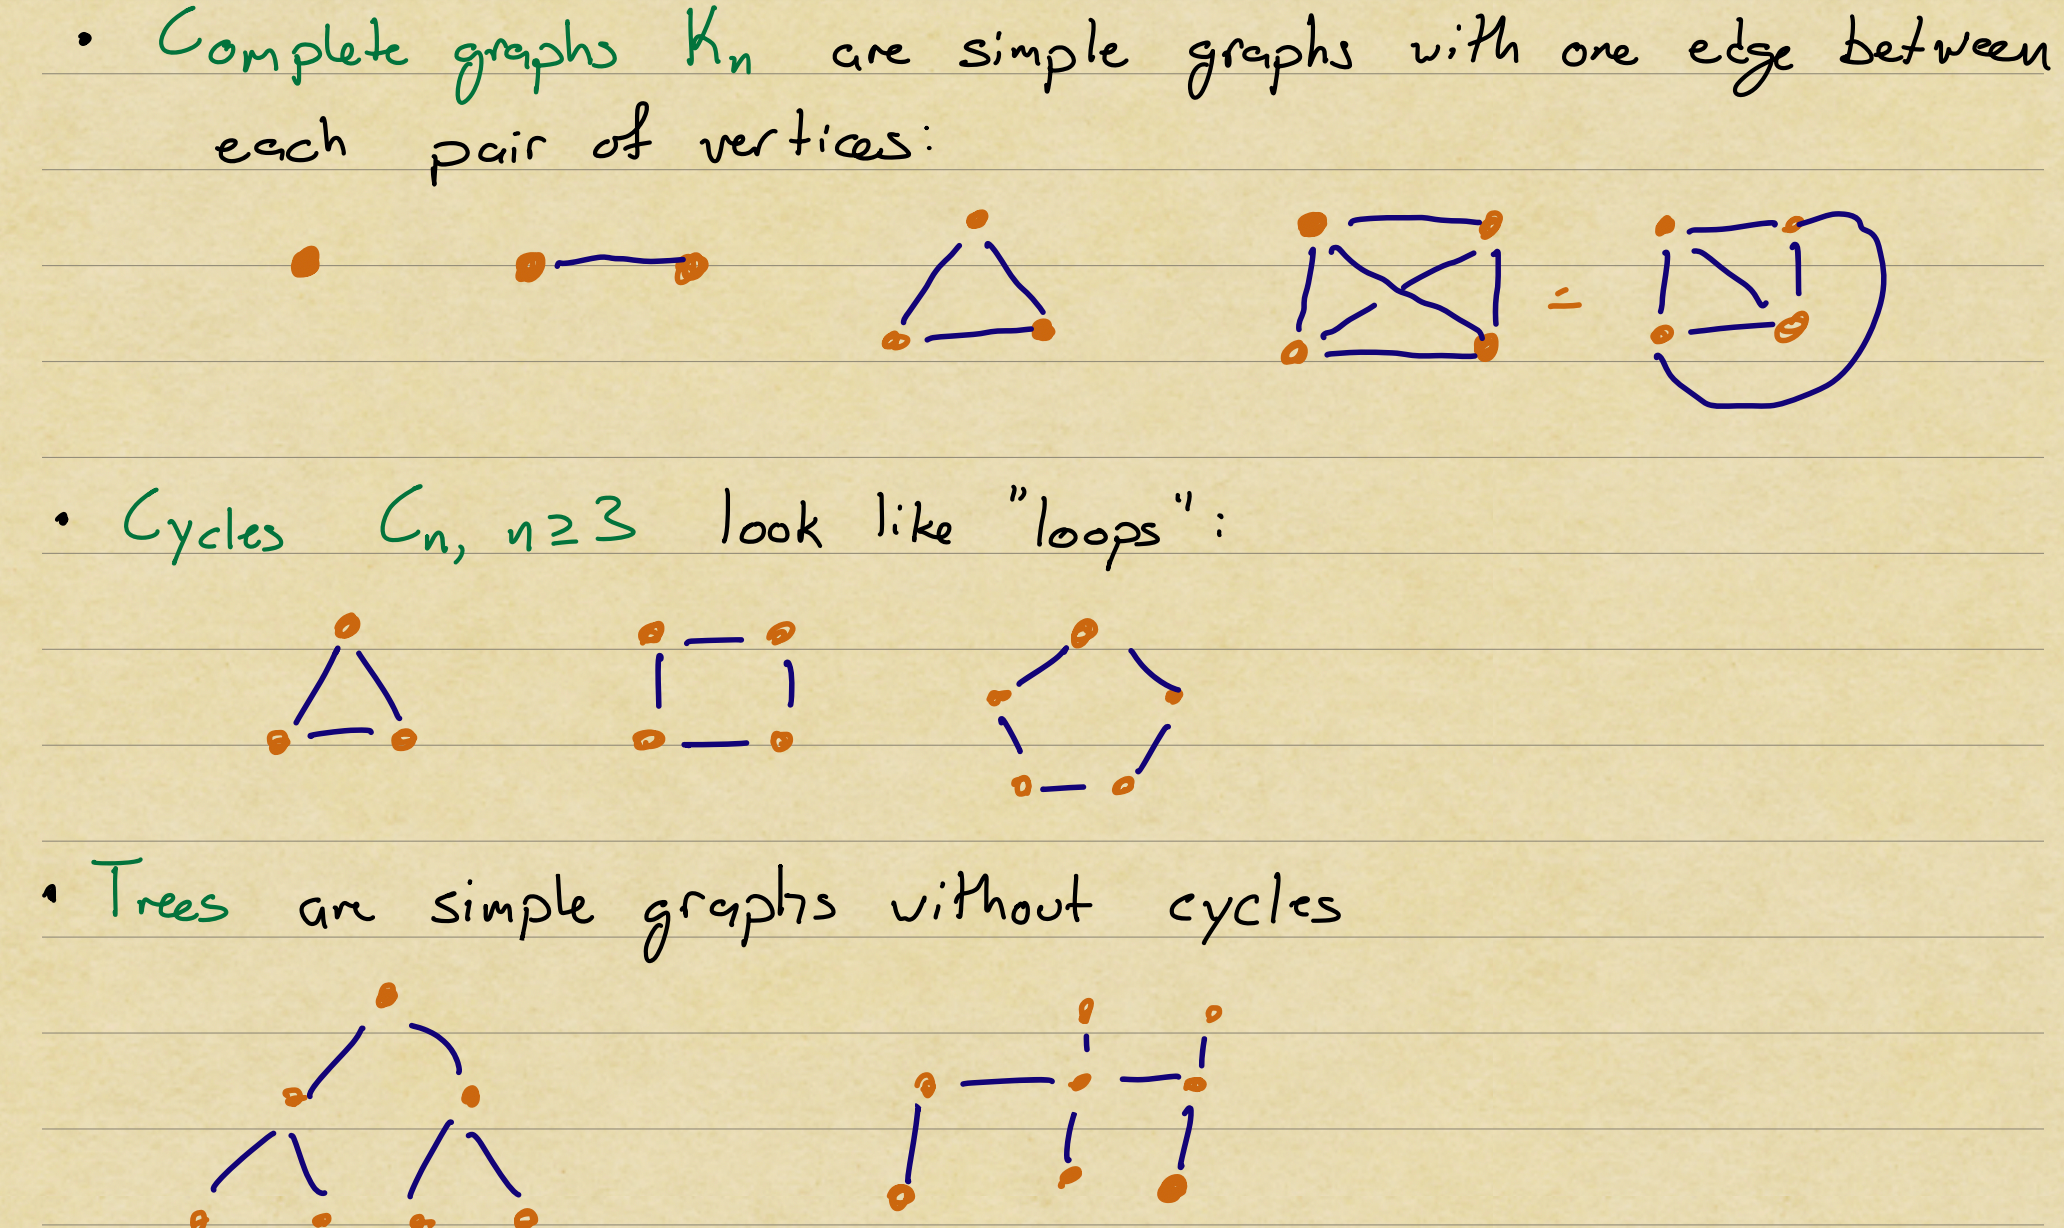 • Complete graphs Kn are simple graphs with one edge between
each pair of vertices:
=
• Cycles Cn, n≥3 look like "loops":
• Trees are simple graphs without cycles